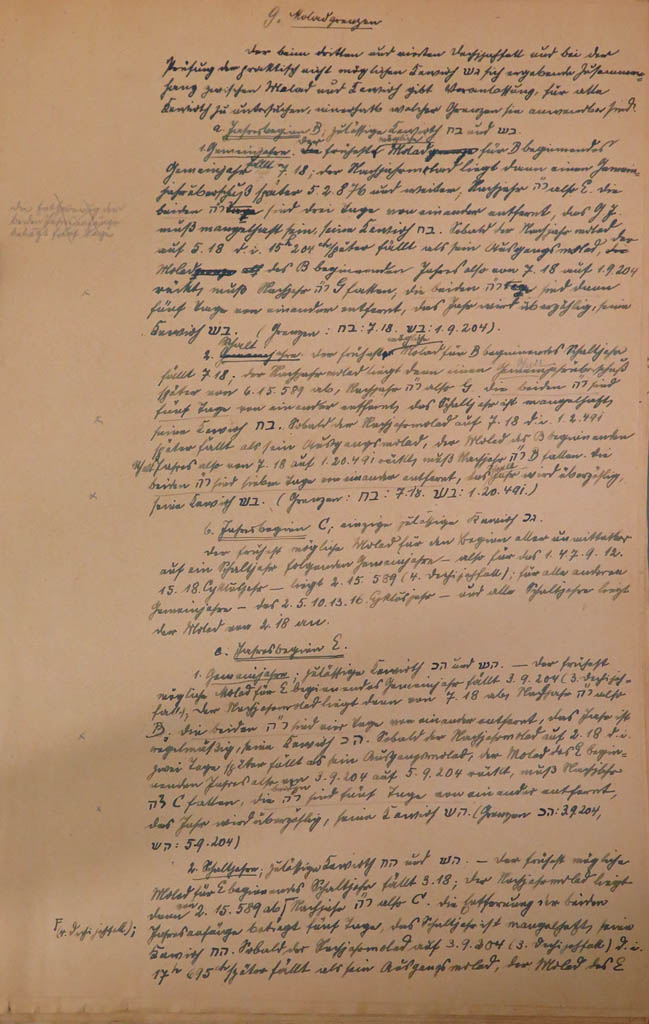 9. Moladgrenzen
Der beim dritten und vierten Dechijahfall und bei der
Prüfung der praktisch nicht möglichen Kewioh גש sich ergebende Zusammen-
hang zwischen Molad und Kewioh gibt Veranlassung, für alle
Kewioth zu untersuchen, innerhalb welcher Grenzen sie anwendbar sind.
a. Jahresbeginn B; zulässige Kewioth בח und בש.
1. Gemeinjahre. Der früheste mögliche Molad für B beginnendes
Gemeinjahr fällt 7.18; der Nachjahrmolad liegt dann einen Gemein-
jahrüberschuß später 5.2.876 und weiter, Nachjahr ר״ה also E. Die
beiden ר״ה sind drei Tage von einander entfernt, das G J.
muß mangelhaft sein, sein Kewioh בח. Sobald der Nachjahr molad
auf 5.18 d.i. 15 h 204 später fällt als sein Ausgangsmolad, der
Molad des B beginnenden Jahres also von 7.18 auf 1.9.204
rückt, muß Nachjahr ר״ה G fallen, die beiden ר״ה sind dann
fünf Tage von einander entfernt, das Jahr wird überzählig, seine
Kewioh בש. (Grenzen: בח: 7.18. בש: 1.9.204).
2. Schalt jahre. Der früheste mögliche Molad für B beginnendes Schaltjahr
fällt 7.18; der Nachjahrmolad liegt dann einen
später von 6.15.589 ab, Nachjahr ר״ה also G. Die beiden ר״ה sind
fünf Tage von einander entfernt, das Schaltjahr ist mangelhaft,
seine Kewioh בח. Sobald der Nachjahrmolad auf 7.18 d.i. 1.2.491
später fällt als sein Ausgangsmolad, der Molad des B beginnenden
Jahres also von 7.18 auf 1.20.491 rückt, muß Nachjahr ר״ה B fallen. Die
beiden ר״ה sind sieben Tage von einander entfernt, das Jahr wird überzählig,
seine Kewioh בש. (Grenzen: בח: 7.18 בש: 1.20.491.)
b. Jahresbeginn C; einzige zulässige Kewioh גכ.
Der früheste mögliche Molad für den Beginn aller unmittelbar
auf ein Schaltjahr folgenden Gemeinjahre – also für das 1. 4. 7. 9. 12.
15. 18. Cyklusjahr – liegt 2.15.589 (4. Dechijahfall); für alle anderen
Gemeinjahre – das 2. 5. 10. 13. 16. Cyklusjahr – und alle Schaltjahre liegt
der Molad von 2.18 an.
c. Jahresbeginn E.
1. Gemeinjahre; zulässige Kewioth הכ und הש. – Der früheste
mögliche Molad für E beginnendes Gemeinjahr fällt 3.9.204 (3. Dechijah-
fall), der Nachjahrmolad liegt dann von 7.18 ab, Nachjahr ר״ה also
B. Die beiden ר״ה sind vier Tage von einander entfernt, das Jahr ist
regelmäßig, seine Kewioh הכ. Sobald der Nachjahrmolad auf 2.18 d.i.
zwei Tage später fällt als sein Ausgangsmolad, der Molad des E begin-
nenden Jahres also von 3.9.204 auf 5.9.204 rückt, muß Nachjahr
ר״ה C fallen, die beiden ר״ה sind fünf Tage von einander entfernt,
das Jahr wird überzählig, seine Kewioh הש. (Grenzen הכ: 3.9.204,
הש: 5.9.204)
2. Schaltjahre; zulässige Kewioth הח und הש. – Der früheste mögliche
Molad für E beginnendes Schaltjahr fällt 3.18; der Nachjahrmolad liegt
dann von 2.15.589 ab Nachjahr ר״ה also C. Die Entfernung der beiden
(4. Dechijahfall);
Jahresanfänge beträgt fünf Tage, das Schaltjahr ist mangelhaft, seine
Kewioh הח. Sobald der Nachjahrmolad auf 3.9.204 (3. Dechijahfall) d.i.
17 h 695 später fällt als sein Ausgangsmolad, der Molad des E